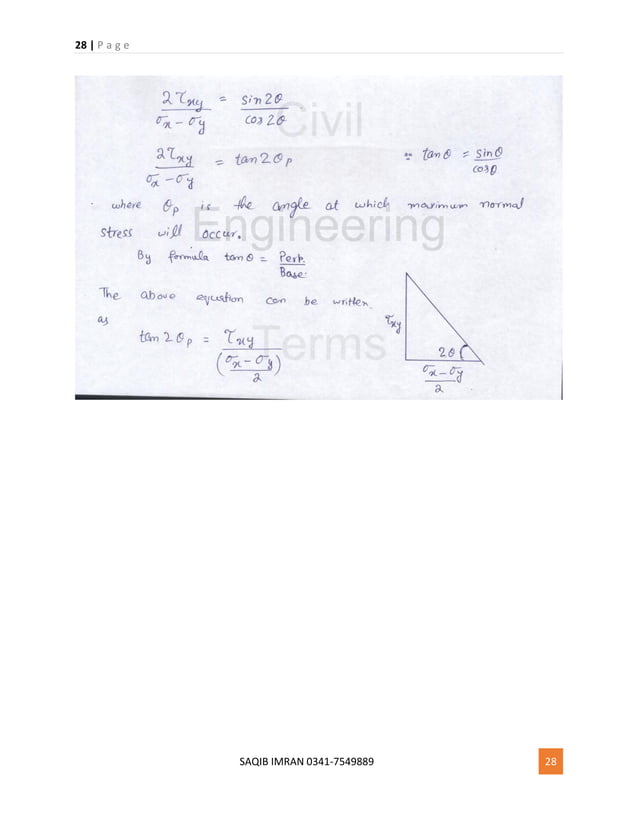 28 | P a g e
2τxy / (σx - σy) = sin2θ / cos2θ
2τxy / (σx - σy) = tan2θp ∵ tanθ = sinθ / cosθ
where θp is the angle at which maximum normal
stress will occur.
By formula tanθ = Perp. / Base.
The above equation can be written
as
tan2θp = τxy / ((σx - σy) / 2)
τxy
2θ
(σx - σy) / 2
Civil
Engineering
Terms
SAQIB IMRAN 0341-7549889
28